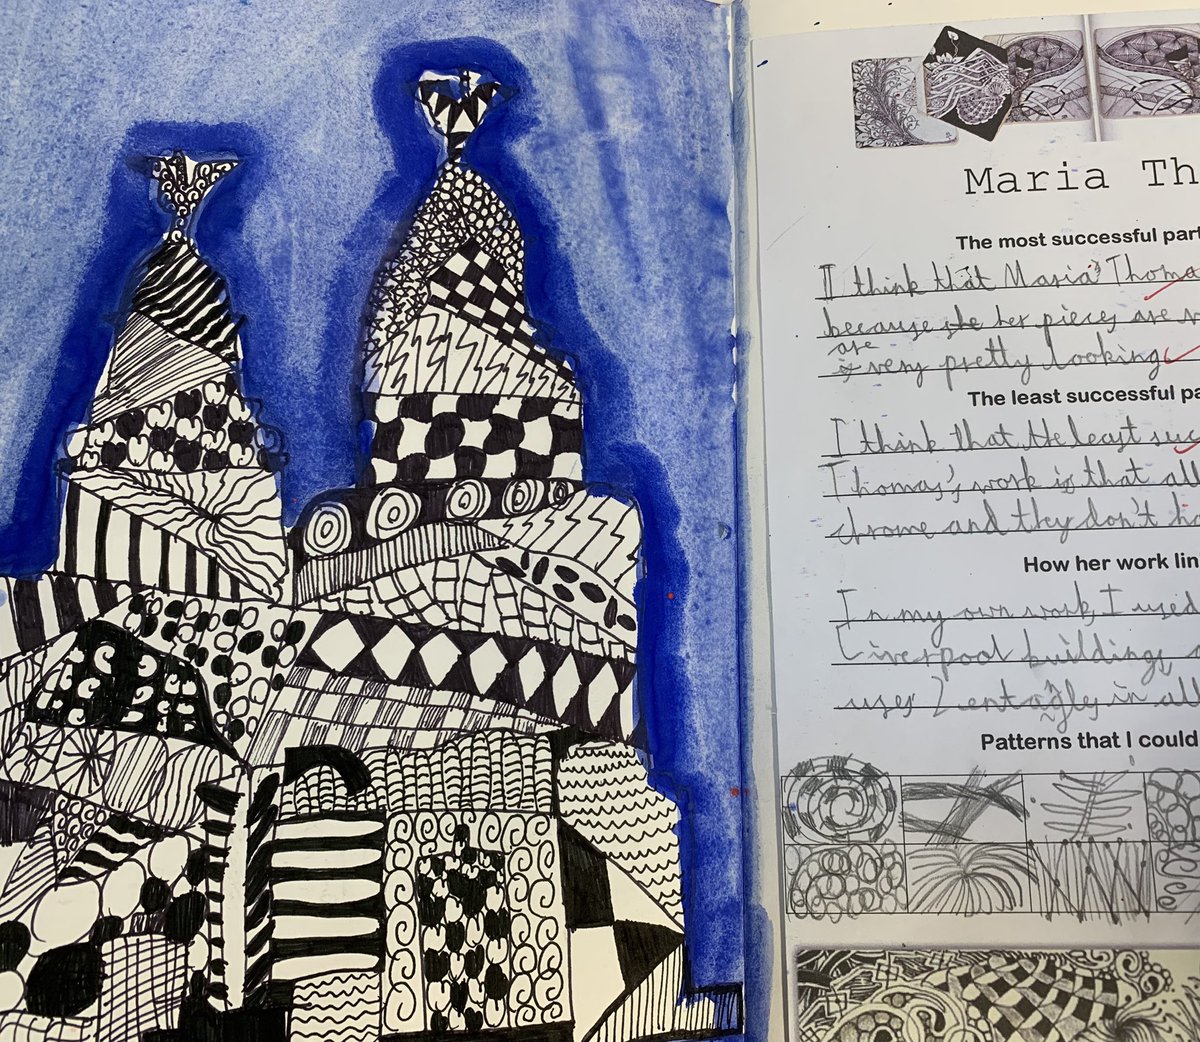 Maria Th
The most successful part
I think that Maria Thoma
because she her pieces are
are
very pretty looking
The least successful pa
I think that the least suc
Thomas's work is that all
chrome and they don't h
How her work lin
In my own work I used
Liverpool buildings
uses Zentagles in all
Patterns that I could